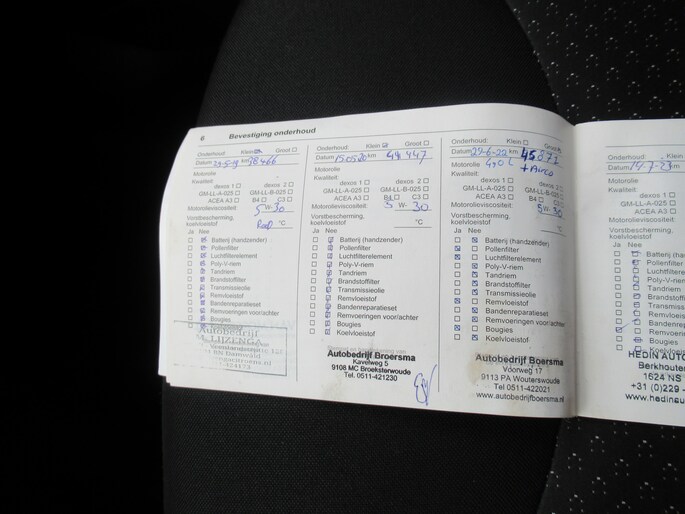 6 Bevestiging onderhoud
Onderhoud: Klein Groot
Datum km 28466
Motorolie
Kwaliteit:
dexos 1 dexos 2
GM-LL-A-025 GM-LL-B-025
ACEA A3 B4 C3
Motorolieviscositeit: 5 W- 30
Vorstbescherming,
koelvloeistof Rood °C
Ja Nee
Batterij (handzender)
Pollenfilter
Luchtfilterelement
Poly-V-riem
Tandriem
Brandstoffilter
Transmissieolie
Remvloeistof
Bandenreparatieset
Remvoeringen voor/achter
Bougies
Autobedrijf
Onderhoud: Klein Groot
Datum 15.05.20 km
Motorolie
Kwaliteit:
dexos 1 dexos 2
GM-LL-A-025 GM-LL-B-025
ACEA A3 B4 C3
Motorolieviscositeit: 5 W- 30
Vorstbescherming,
koelvloeistof °C
Ja Nee
Batterij (handzender)
Pollenfilter
Luchtfilterelement
Poly-V-riem
Tandriem
Brandstoffilter
Transmissieolie
Remvloeistof
Bandenreparatieset
Remvoeringen voor/achter
Bougies
Koelvloeistof
Autobedrijf Broersma
Kavelweg 5
9108 MC Broeksterwoude
Tel. 0511-421230
Onderhoud: Klein Groot
Datum 29-6-22 km 45873
Motorolie 4,0 L + Airco
Kwaliteit:
dexos 1 dexos 2
GM-LL-A-025 GM-LL-B-025
ACEA A3 B4 C3
Motorolieviscositeit: 5 W- 30
Vorstbescherming,
koelvloeistof °C
Ja Nee
Batterij (handzender)
Pollenfilter
Luchtfilterelement
Poly-V-riem
Tandriem
Brandstoffilter
Transmissieolie
Remvloeistof
Bandenreparatieset
Remvoeringen voor/achter
Bougies
Koelvloeistof
Autobedrijf Boersma
Voorweg 17
9113 PA Wouterswoude
Tel 0511-422021
www.autobedrijfboersma.nl
Onderhoud:
Datum 19-7-23 km
Motorolie
Kwaliteit:
GM-LL-A-025
ACEA A3
Motorolieviscositeit
Vorstbescherming,
koelvloeistof
Ja Nee
Batterij
Pollenfilter
Luchtfilterelement
Poly-V-riem
Tandriem
Brandstoffilter
Transmissie
Remvloeistof
Bandenrepa
Remvoerin
Bougies
Koelvloeist
HEDIN AUTO
Berkhouter
1624 NS
+31 (0)229 -
www.hedinau